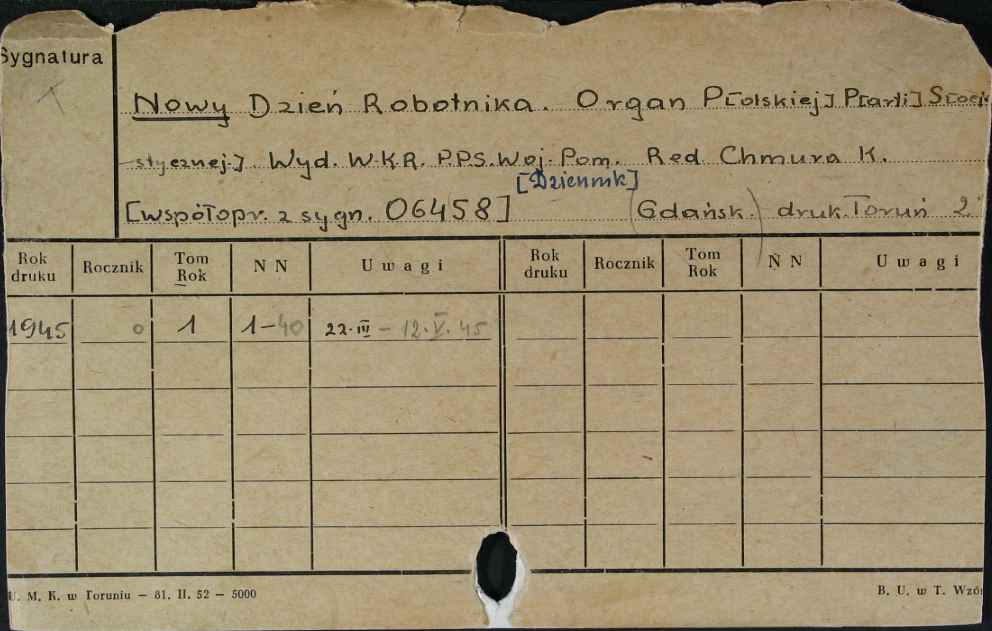 Sygnatura
Nowy Dzień Robotnika. Organ P[olskiej] P[artii] S[ocj
-stycznej]. Wyd. W.K.R. P.P.S. Woj. Pom. Red. Chmura K.
[Dziennik]
[współopr. z sygn. 06458] (Gdańsk) druk. Toruń 2
Rok druku Rocznik Tom Rok N N Uwagi Rok druku Rocznik Tom Rok N N Uwagi
1945 0 1 1-40 22.III - 12.V.45
U. M. K. w Toruniu — 81. II. 52 — 5000 B. U. w T. Wzó